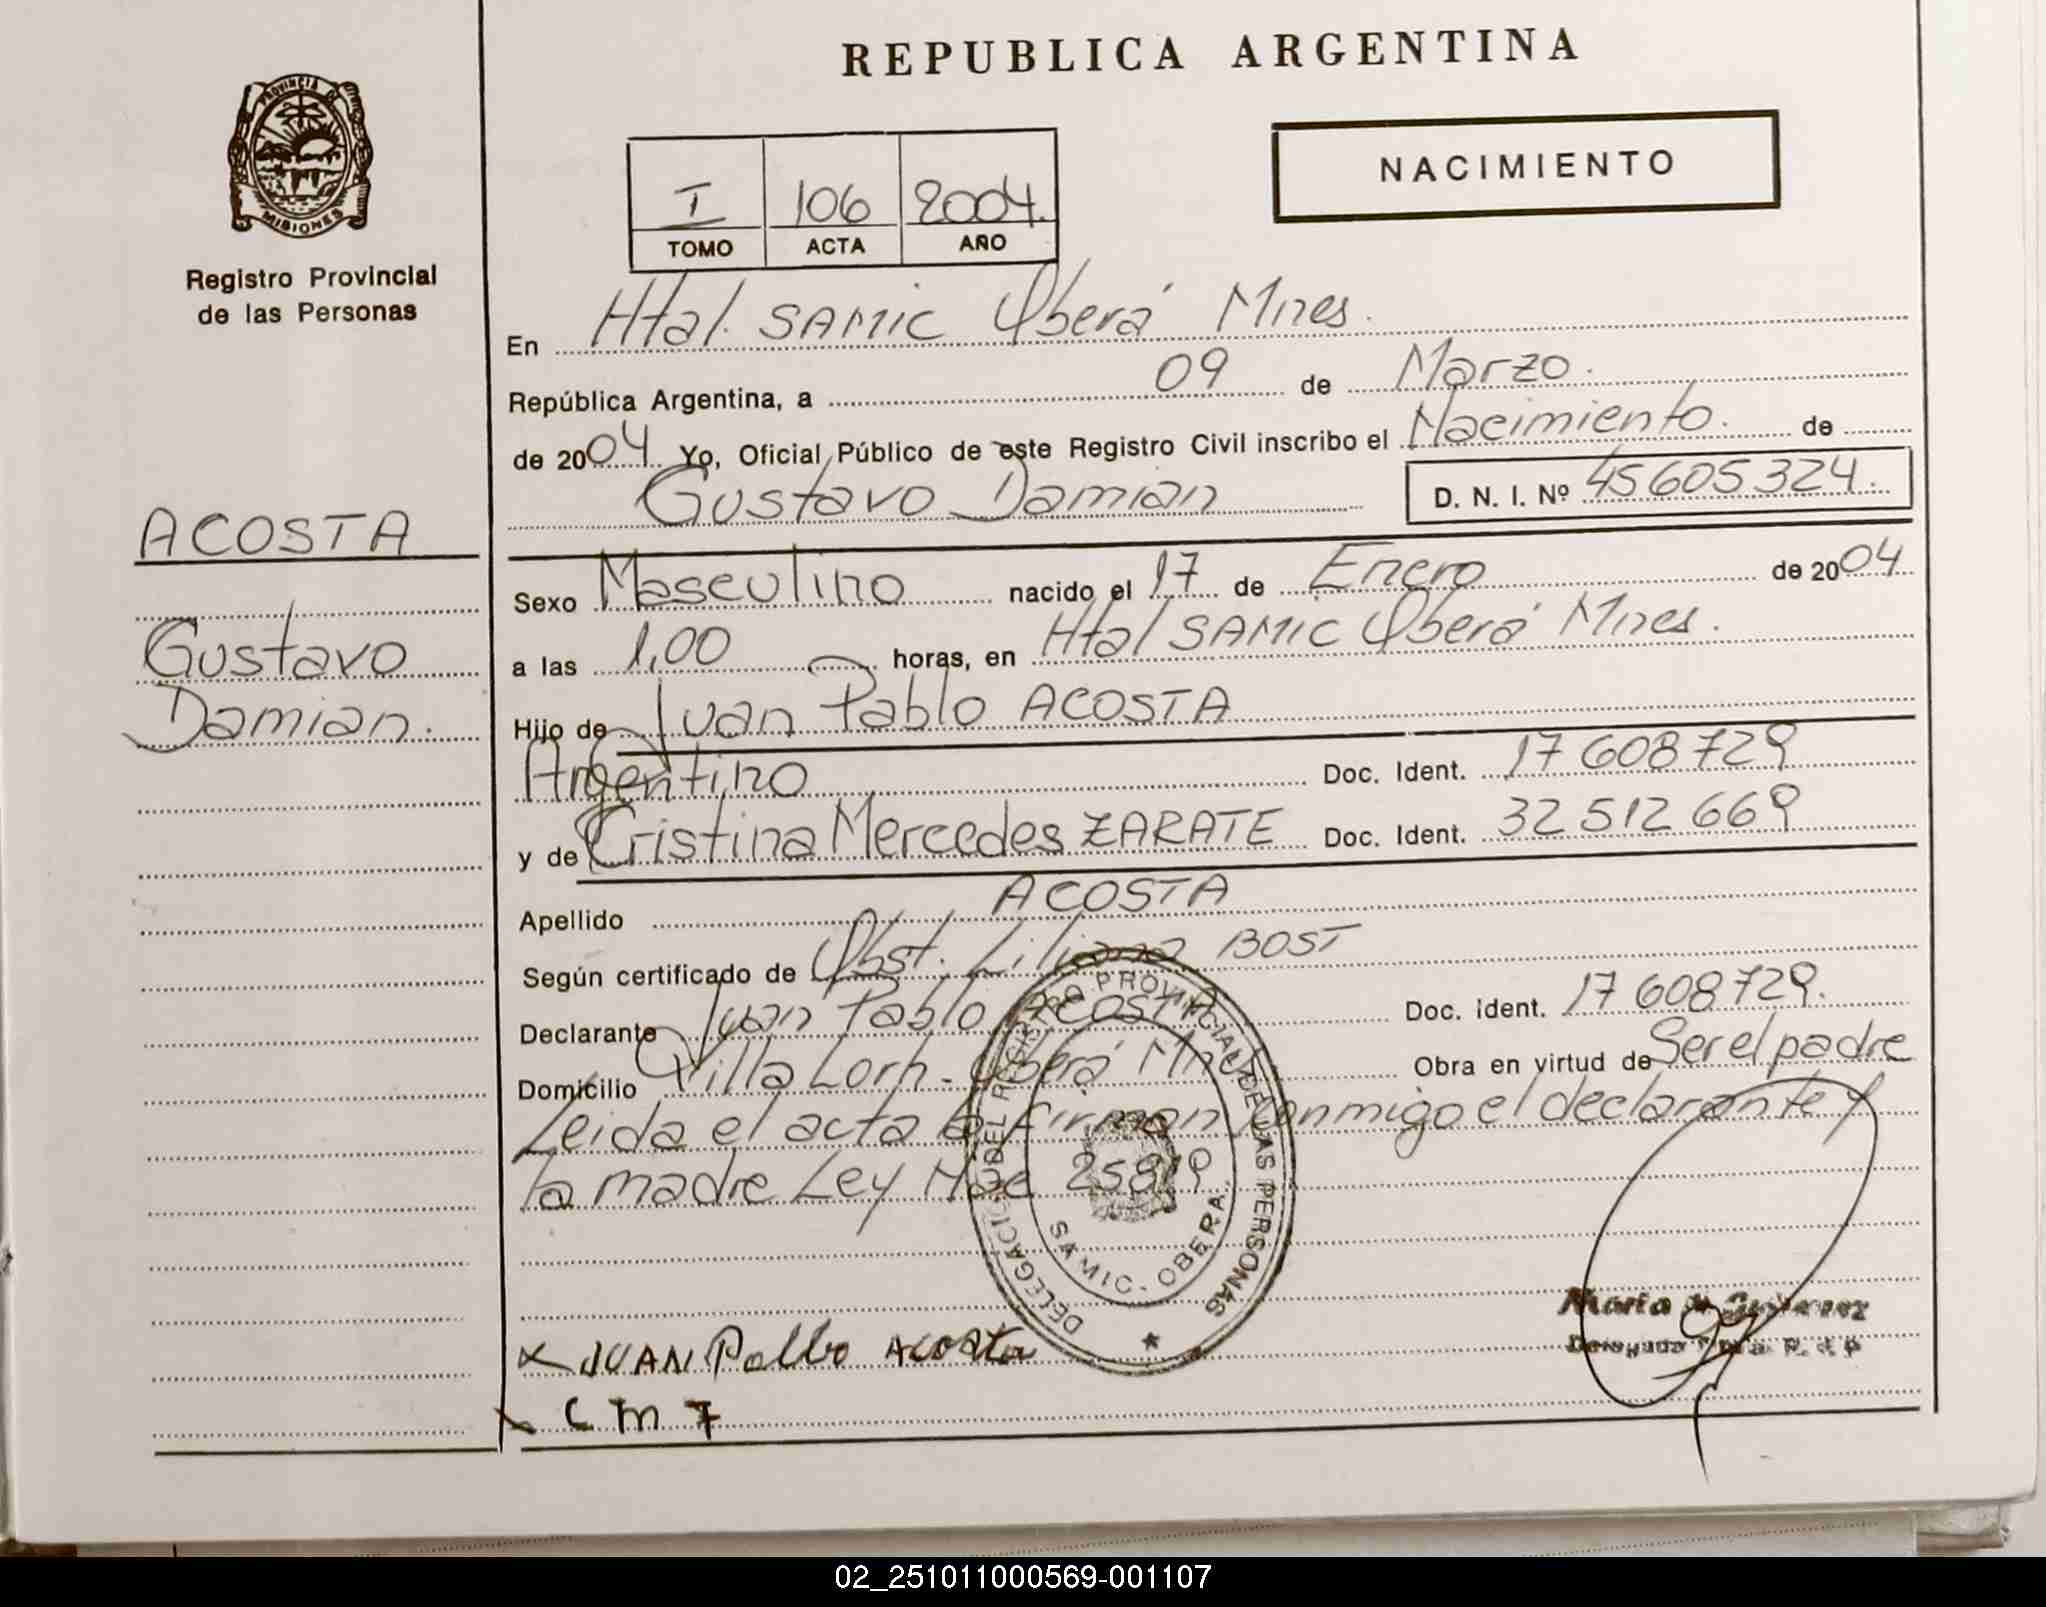 REPUBLICA ARGENTINA
PROVINCIA DE
MISIONES
Registro Provincial
de las Personas
I 106 2004.
TOMO ACTA AÑO
NACIMIENTO
En Htal. SAMIC Oberá Mnes.
República Argentina, a 09 de Marzo.
de 2004. Yo, Oficial Público de este Registro Civil inscribo el Nacimiento. de
Gustavo Damian D. N. I. Nº 45605324.
ACOSTA
Gustavo
Damian.
Sexo Masculino nacido el 17 de Enero de 2004
a las 1,00 horas, en Htal SAMIC Oberá Mnes.
Hijo de Juan Pablo ACOSTA
Argentino Doc. Ident. 17 608 729
y de Cristina Mercedes ZARATE Doc. Ident. 32 512 669
Apellido ACOSTA
Según certificado de Obst. Liliana BOST
Declarante Juan Pablo ACOSTA Doc. Ident. 17 608 729.
Domicilio Villa Lorh. Oberá Mnes Obra en virtud de Ser el padre
Leida el acta la firman conmigo el declarante y
la madre Ley Nac 25819
DELEGACION DEL REGISTRO PROVINCIAL DE LAS PERSONAS
SAMIC - OBERA
x JUAN Pablo Acosta
x C M
Maria
02_251011000569-001107